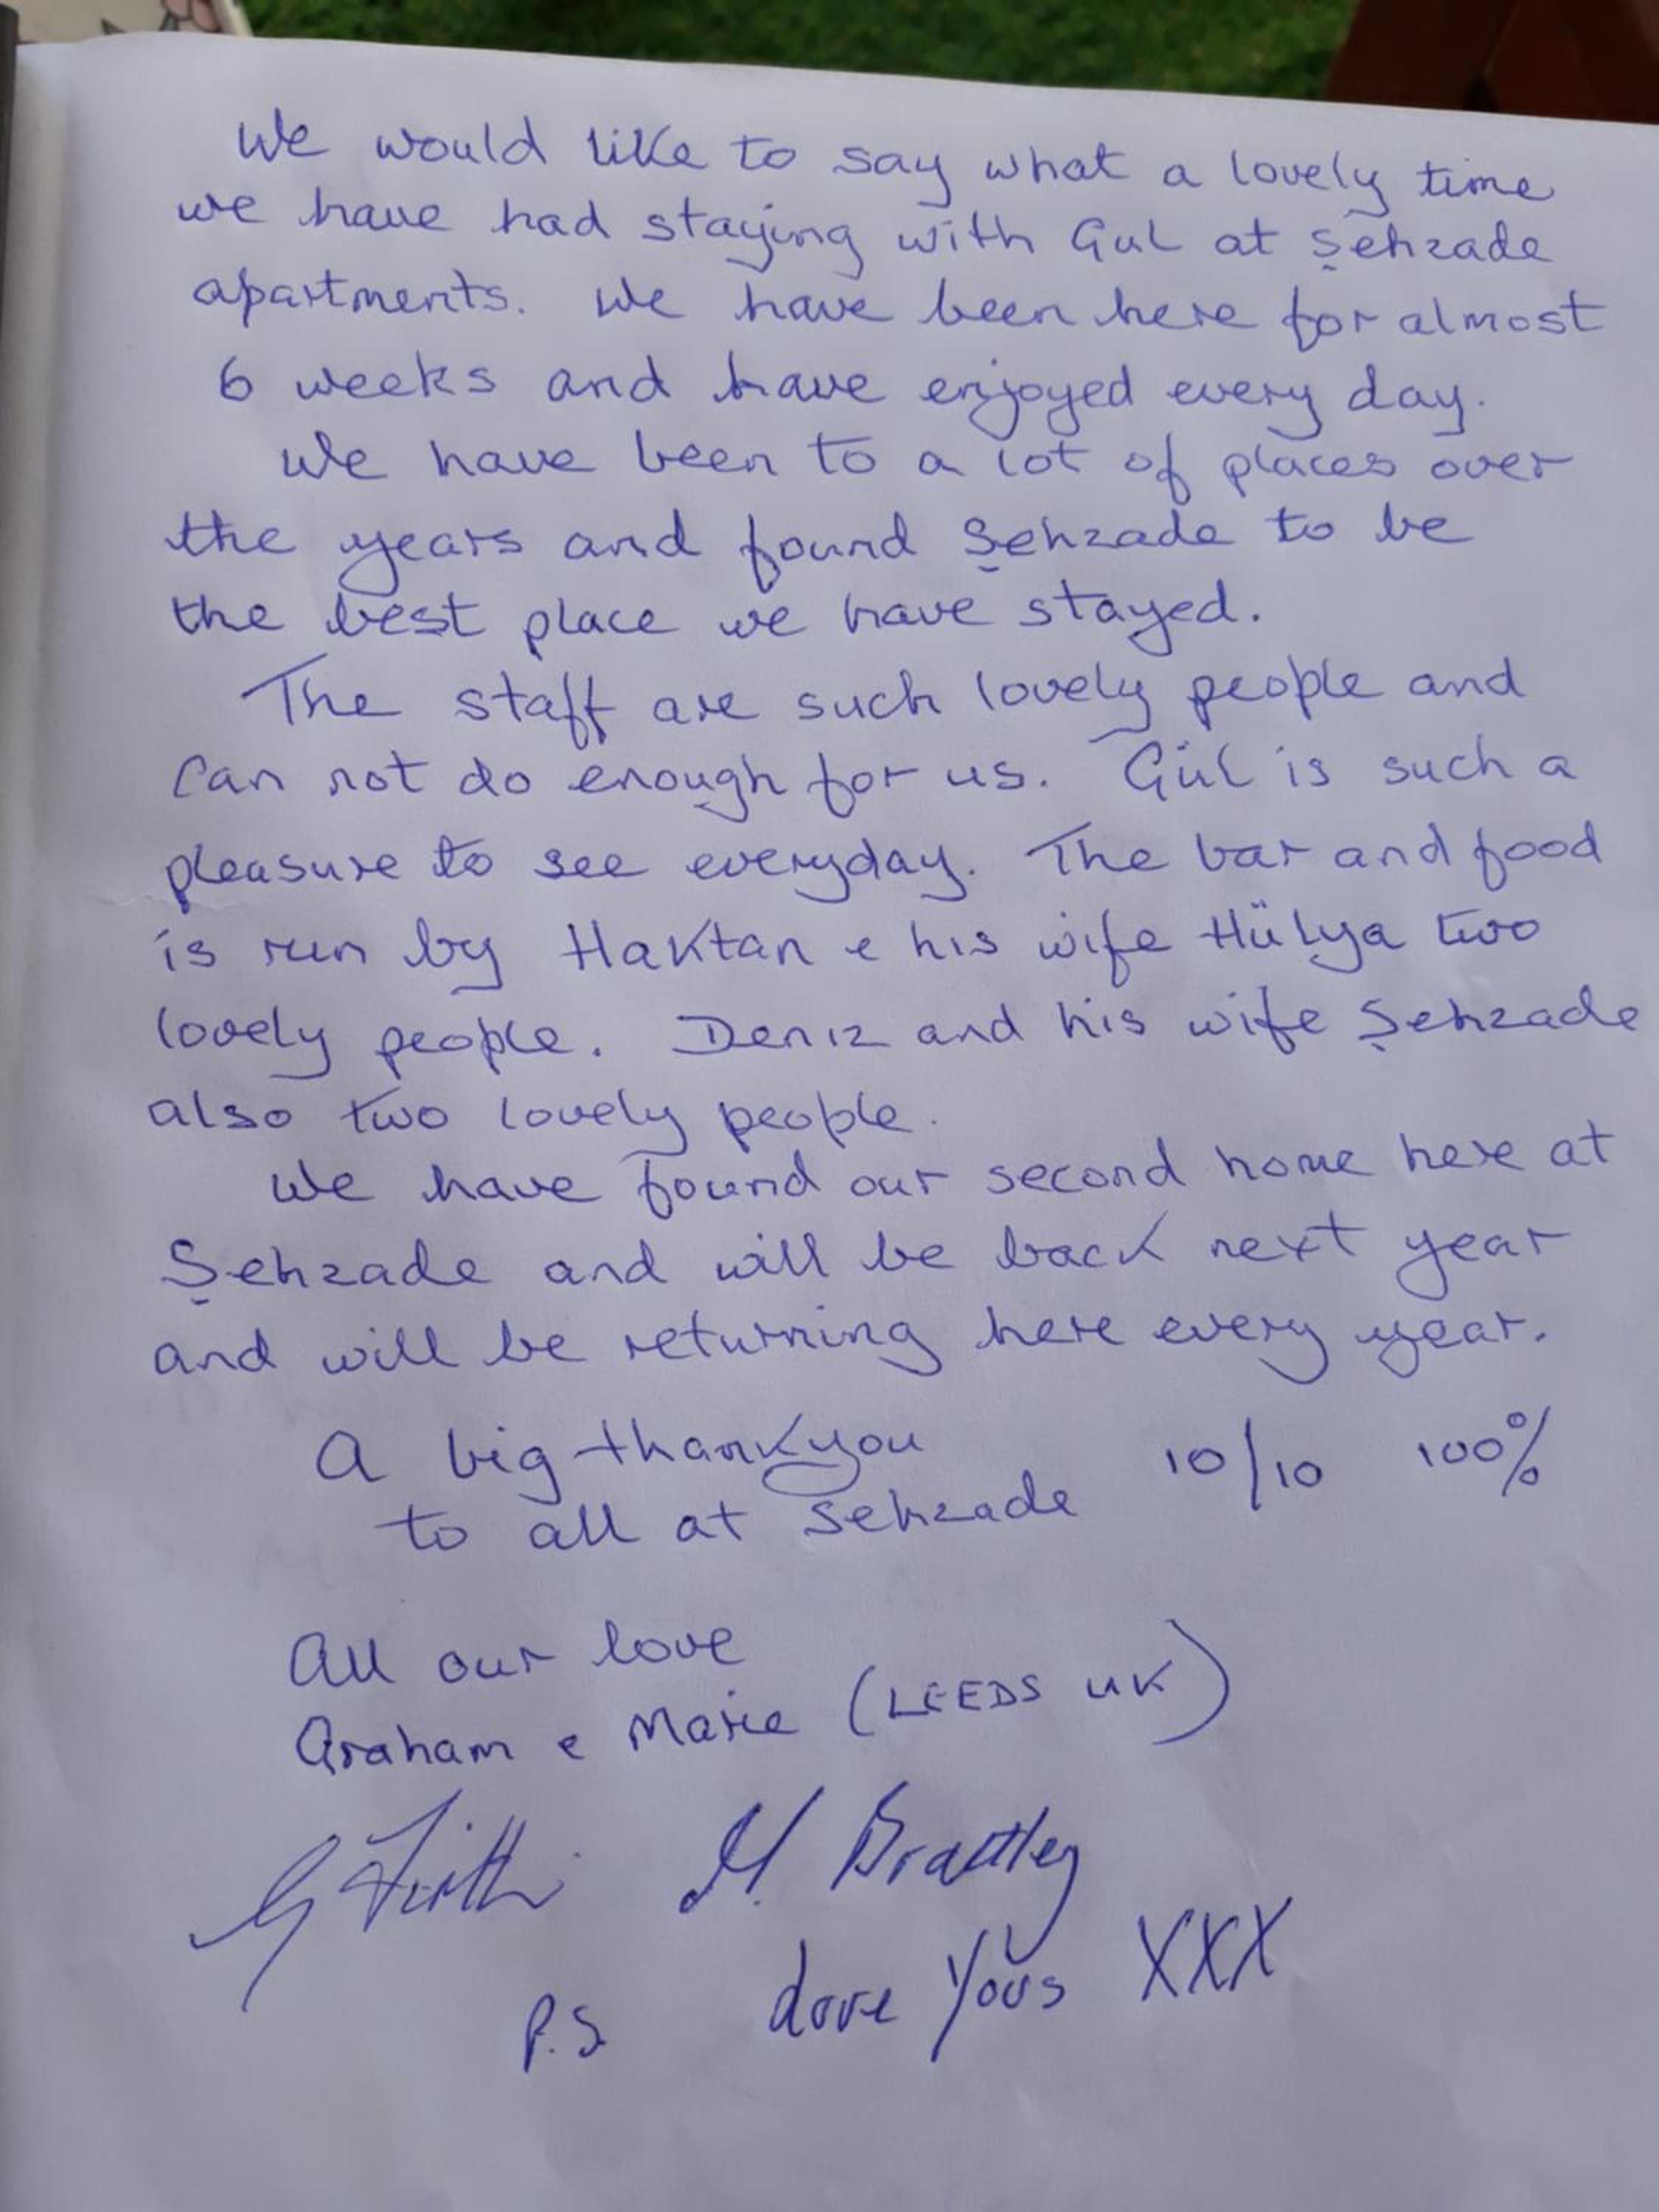 We would like to say what a lovely time
we have had staying with Gul at Şehzade
apartments. We have been here for almost
6 weeks and have enjoyed every day.
We have been to a lot of places over
the years and found Şehzade to be
the best place we have stayed.
The staff are such lovely people and
can not do enough for us. Gül is such a
pleasure to see everyday. The bar and food
is run by Haktan e his wife Hülya two
lovely people. Deniz and his wife Şehzade
also two lovely people.
We have found our second home here at
Şehzade and will be back next year
and will be returning here every year.
A big thankyou 10/10 100%
to all at Sehzade
All our love
Graham e Marie (LEEDS UK)
G Firth M. Bradley
P.S love Yous XXX